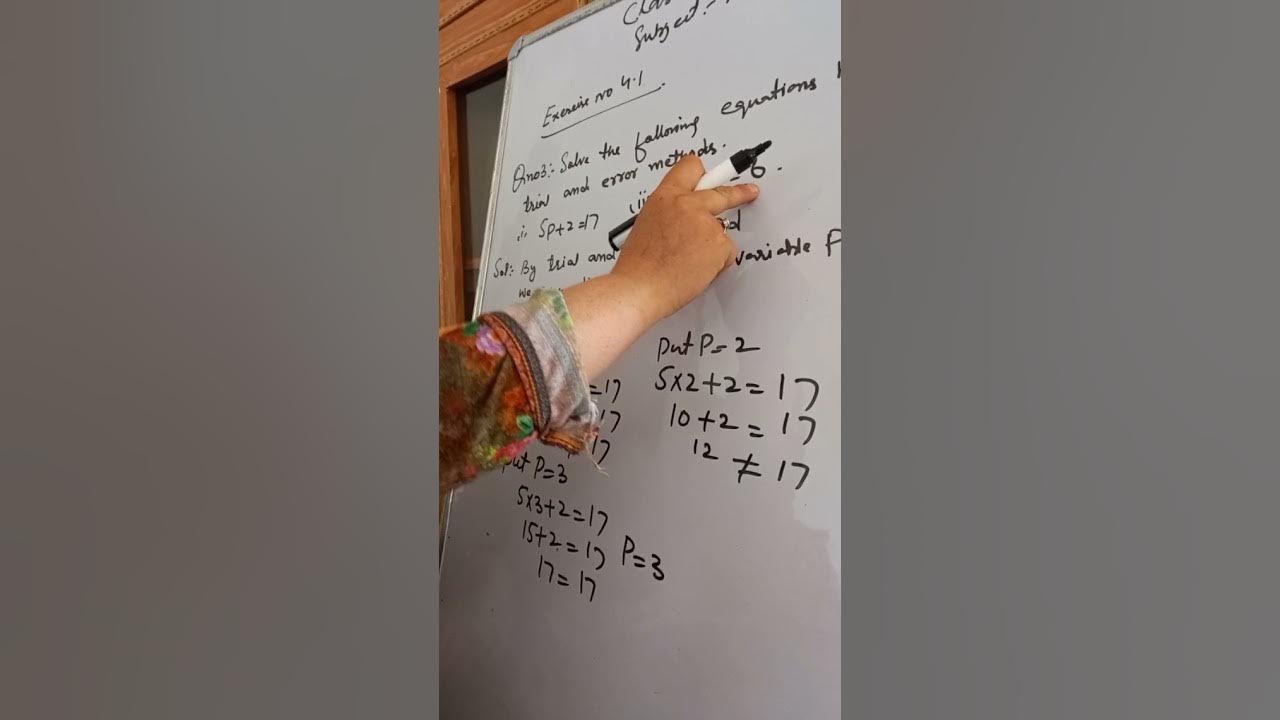 Clas
Subject:-
Exercise no 4.1
Qno3:- Solve the fallowing equations
trial and error methods.
i, 5p+2=17 ii = 6.
Sol:- By trial and variable P
we
put P=2
5x2+2=17
10+2=17
12≠17
=17
17
17
put P=3
5x3+2=17
15+2=17
17=17
P=3